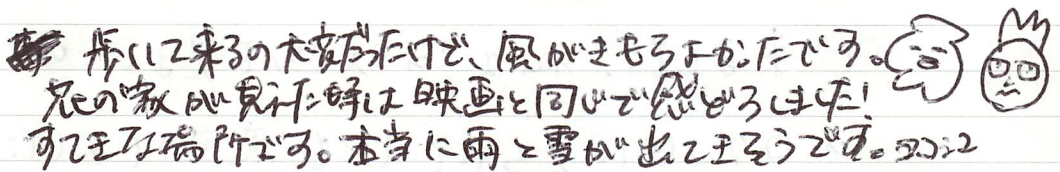 歩いて来るの大変だったけど、風がきもちよかったです。
花の家が見えた時は映画と同じで感どうしました!
すてきな場所です。本当に雨と雪が出てきそうです。